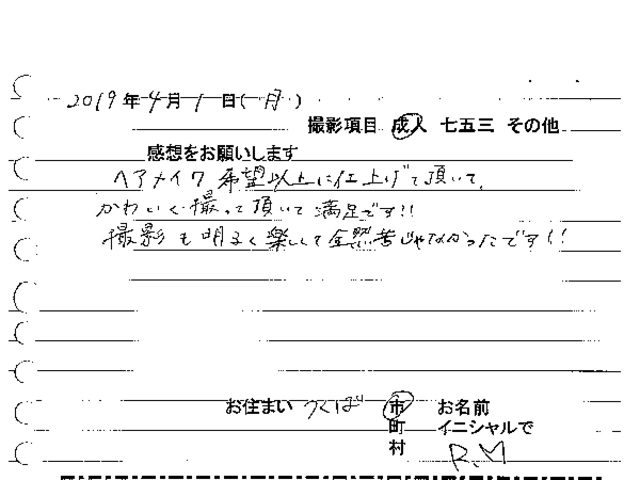 2019年4月1日(月)
撮影項目 成人 七五三 その他
感想をお願いします
ヘアメイク希望以上に仕上げて頂いて、
かわいく撮って頂いて満足です!!
撮影も明るく楽しくて全然苦じゃなかったです!!
お住まい つくば 市 お名前
町 イニシャルで
村 R.M